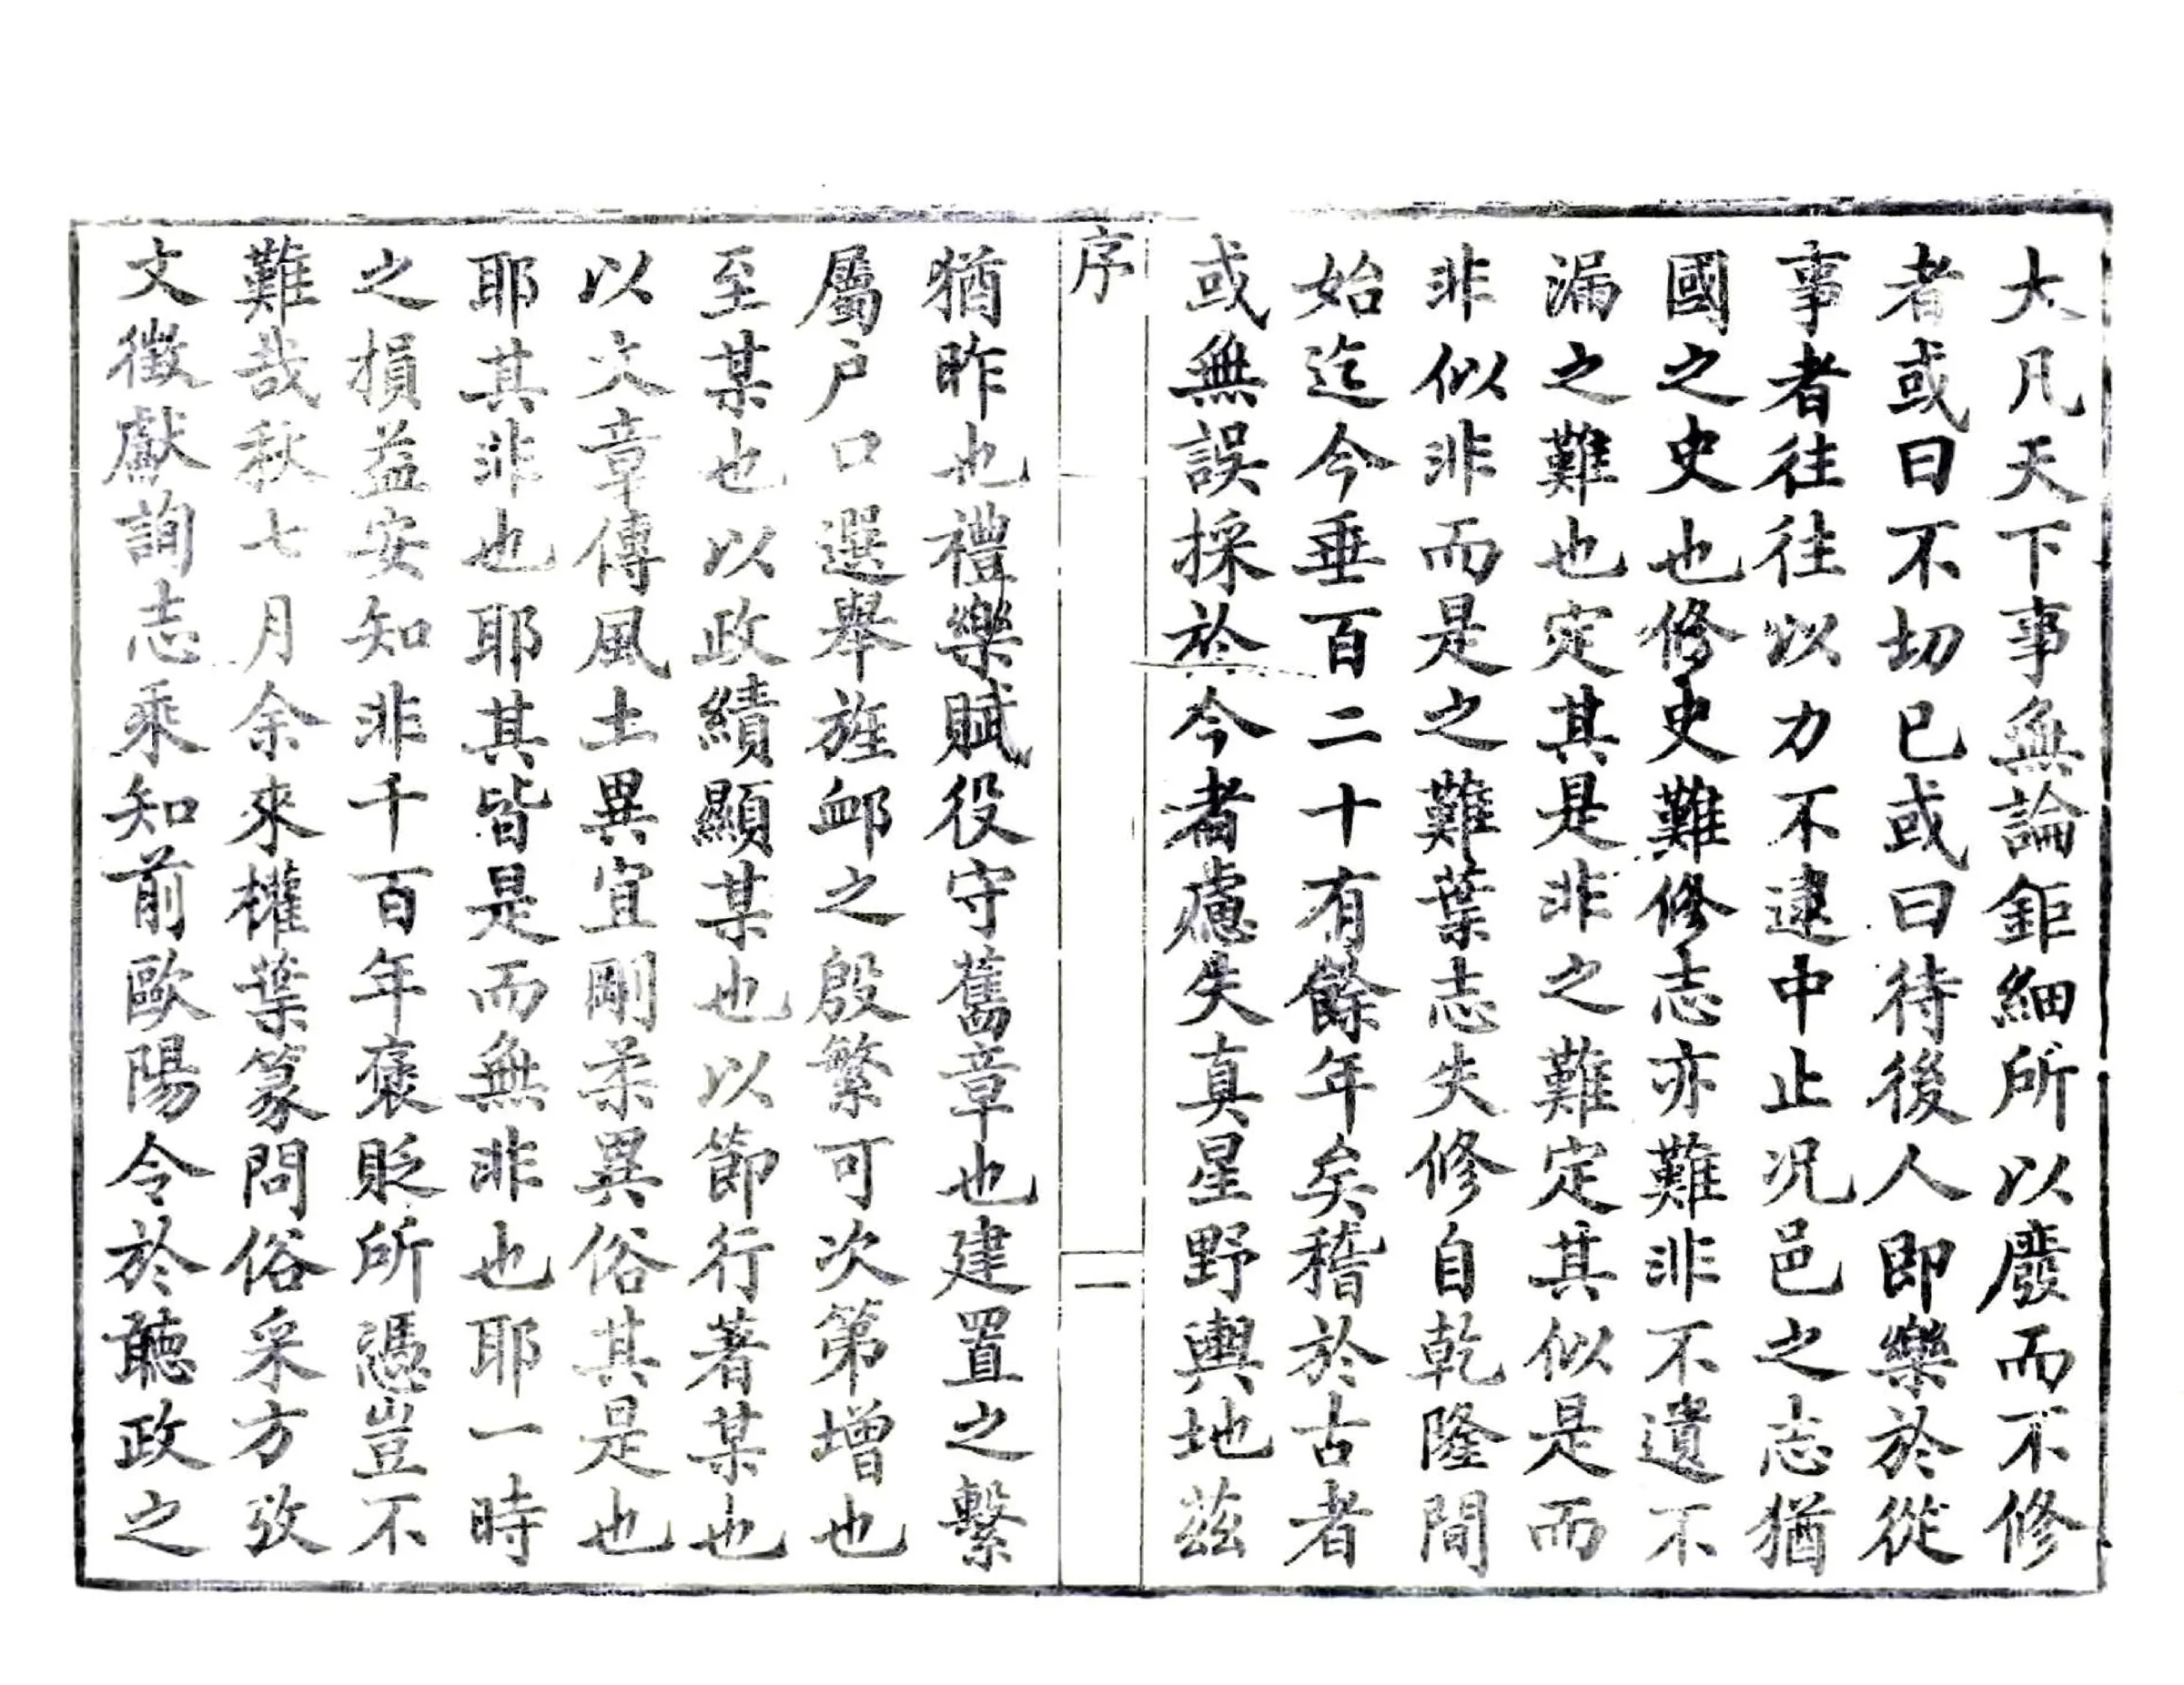 大凡天下事無論鉅細所以廢而不修
者或曰不切已或曰待後人即樂於從
事者往往以力不逮中止况邑之志猶
國之史也修史難修志亦難非不遺不
漏之難也定其是非之難定其似是而
非似非而是之難葉志失修自乾隆間
始迄今垂百二十有餘年矣稽於古者
或無誤採於今者慮失真星野輿地茲
序
一
猶昨也禮樂賦役守舊章也建置之繫
屬户口選舉旌卹之殷繁可次第增也
至某也以政績顯某也以節行著某也
以文章傳風土異宜剛柔異俗其是也
耶其非也耶其皆是而無非也耶一時
之損益安知非千百年褒貶所憑豈不
難哉秋七月余來權葉篆問俗采方攷
文徵獻詢志乘知前歐陽令於聽政之